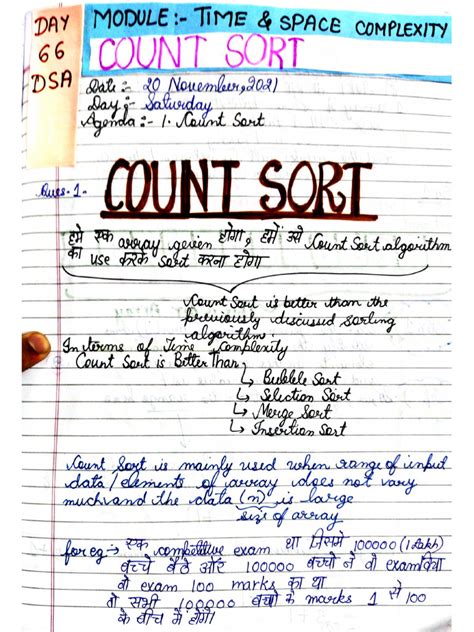 DAY 66 DSA
MODULE:- TIME & SPACE COMPLEXITY
COUNT SORT
Date :- 20 November, 2021
Day :- Saturday
Agenda :- 1. Count Sort
Ques.1- COUNT SORT
हमे एक array given होगा, हमें उसे Count Sort algorithm
का use करके sort करना होगा
Count Sort is better than the
previously discussed sorting
algorithm.
In terms of Time Complexity
Count Sort is Better Than
↳ Bubble Sort
↳ Selection Sort
↳ Merge Sort
↳ Insertion Sort
Count Sort is mainly used when range of input
data/elements of array does not vary
much and the data (n) is large
size of array
for eg → एक competitive exam था जिसमे 100000 (1 Lakh)
बच्चे बैठे और 100000 बच्चो ने वो exam दिया
वो exam 100 marks का था
तो सभी 100000 बच्चो के marks 1 से 100
के बीच में होंगे।